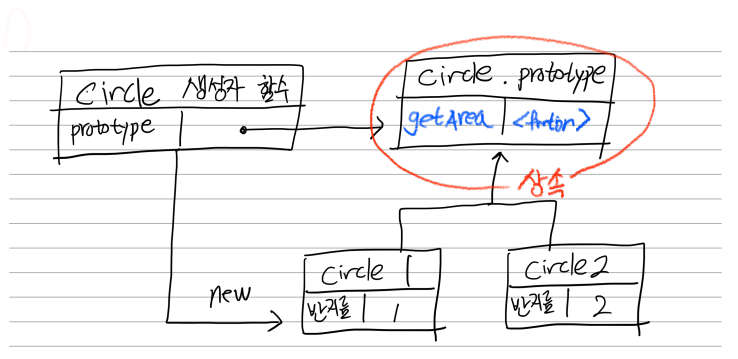 Circle 생성자 함수
prototype
Circle . prototype
getArea
상속
Circle 1
반지름 1
Circle 2
반지름 2
new